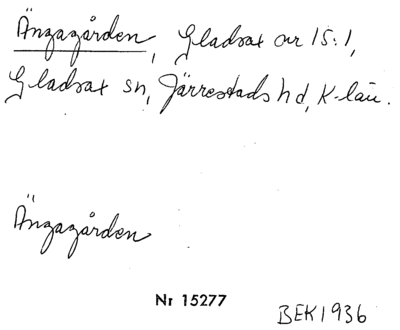 Ängagården, Gladsax ar 15:1,
Gladsax sn, Järrestads hd, K-län.
Ängagården
Nr 15277
BEK 1936